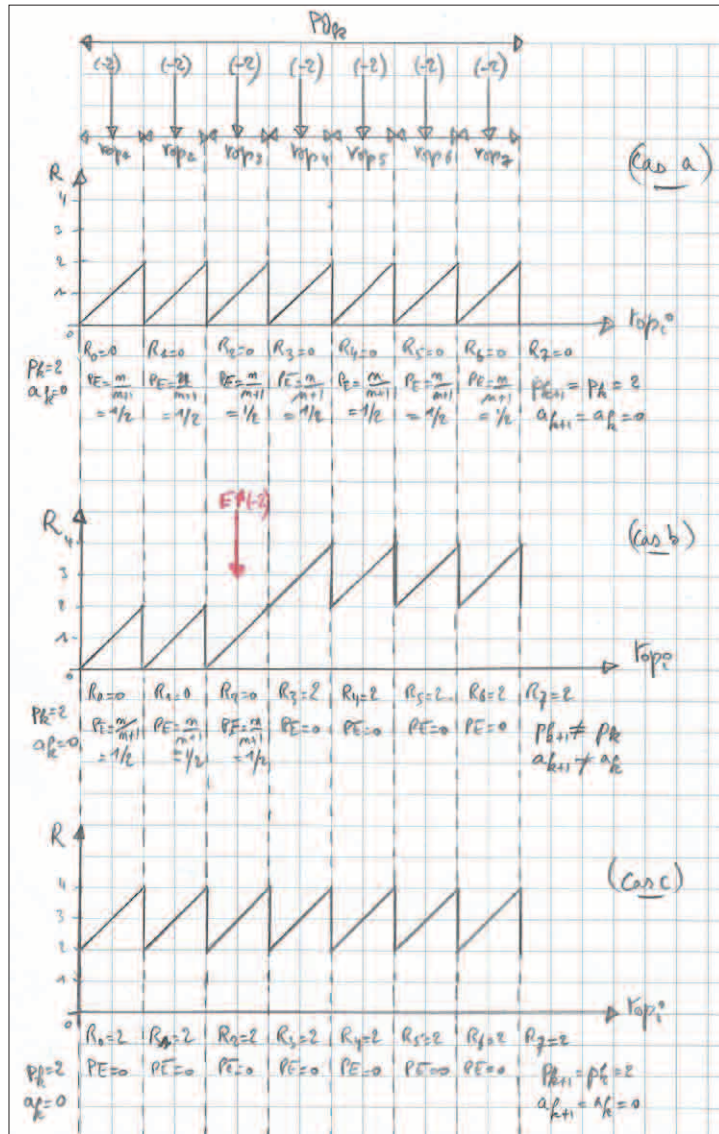 PO_{pk}
(-2) (-2) (-2) (-2) (-2) (-2) (-2)
rop_1 rop_2 rop_3 rop_4 rop_5 rop_6 rop_7
(cas a)
R
4
3
2
1
0
rop_i
R_0=0 R_1=0 R_2=0 R_3=0 R_4=0 R_5=0 R_6=0 R_7=0
p_k=2
a_k=0
PE=m/m+1 PE=m/m+1 PE=m/m+1 PE=m/m+1 PE=m/m+1 PE=m/m+1 PE=m/m+1 p_{k+1}=p_k=2
=1/2 =1/2 =1/2 =1/2 =1/2 =1/2 =1/2 a_{k+1}=a_k=0
(-2)
(cas b)
R
4
3
2
1
0
rop_i
R_0=0 R_1=0 R_2=0 R_3=2 R_4=2 R_5=2 R_6=2 R_7=2
p_k=2
a_k=0
PE=m/m+1 PE=m/m+1 PE=m/m+1 PE=0 PE=0 PE=0 PE=0 p_{k+1}≠p_k
=1/2 =1/2 =1/2 a_{k+1}≠a_k
R
(cas c)
4
3
2
1
0
rop_i
R_0=2 R_1=2 R_2=2 R_3=2 R_4=2 R_5=2 R_6=2 R_7=2
p_k=2
a_k=0
PE=0 PE=0 PE=0 PE=0 PE=0 PE=0 PE=0 p_{k+1}=p_k=2
a_{k+1}=a_k=0